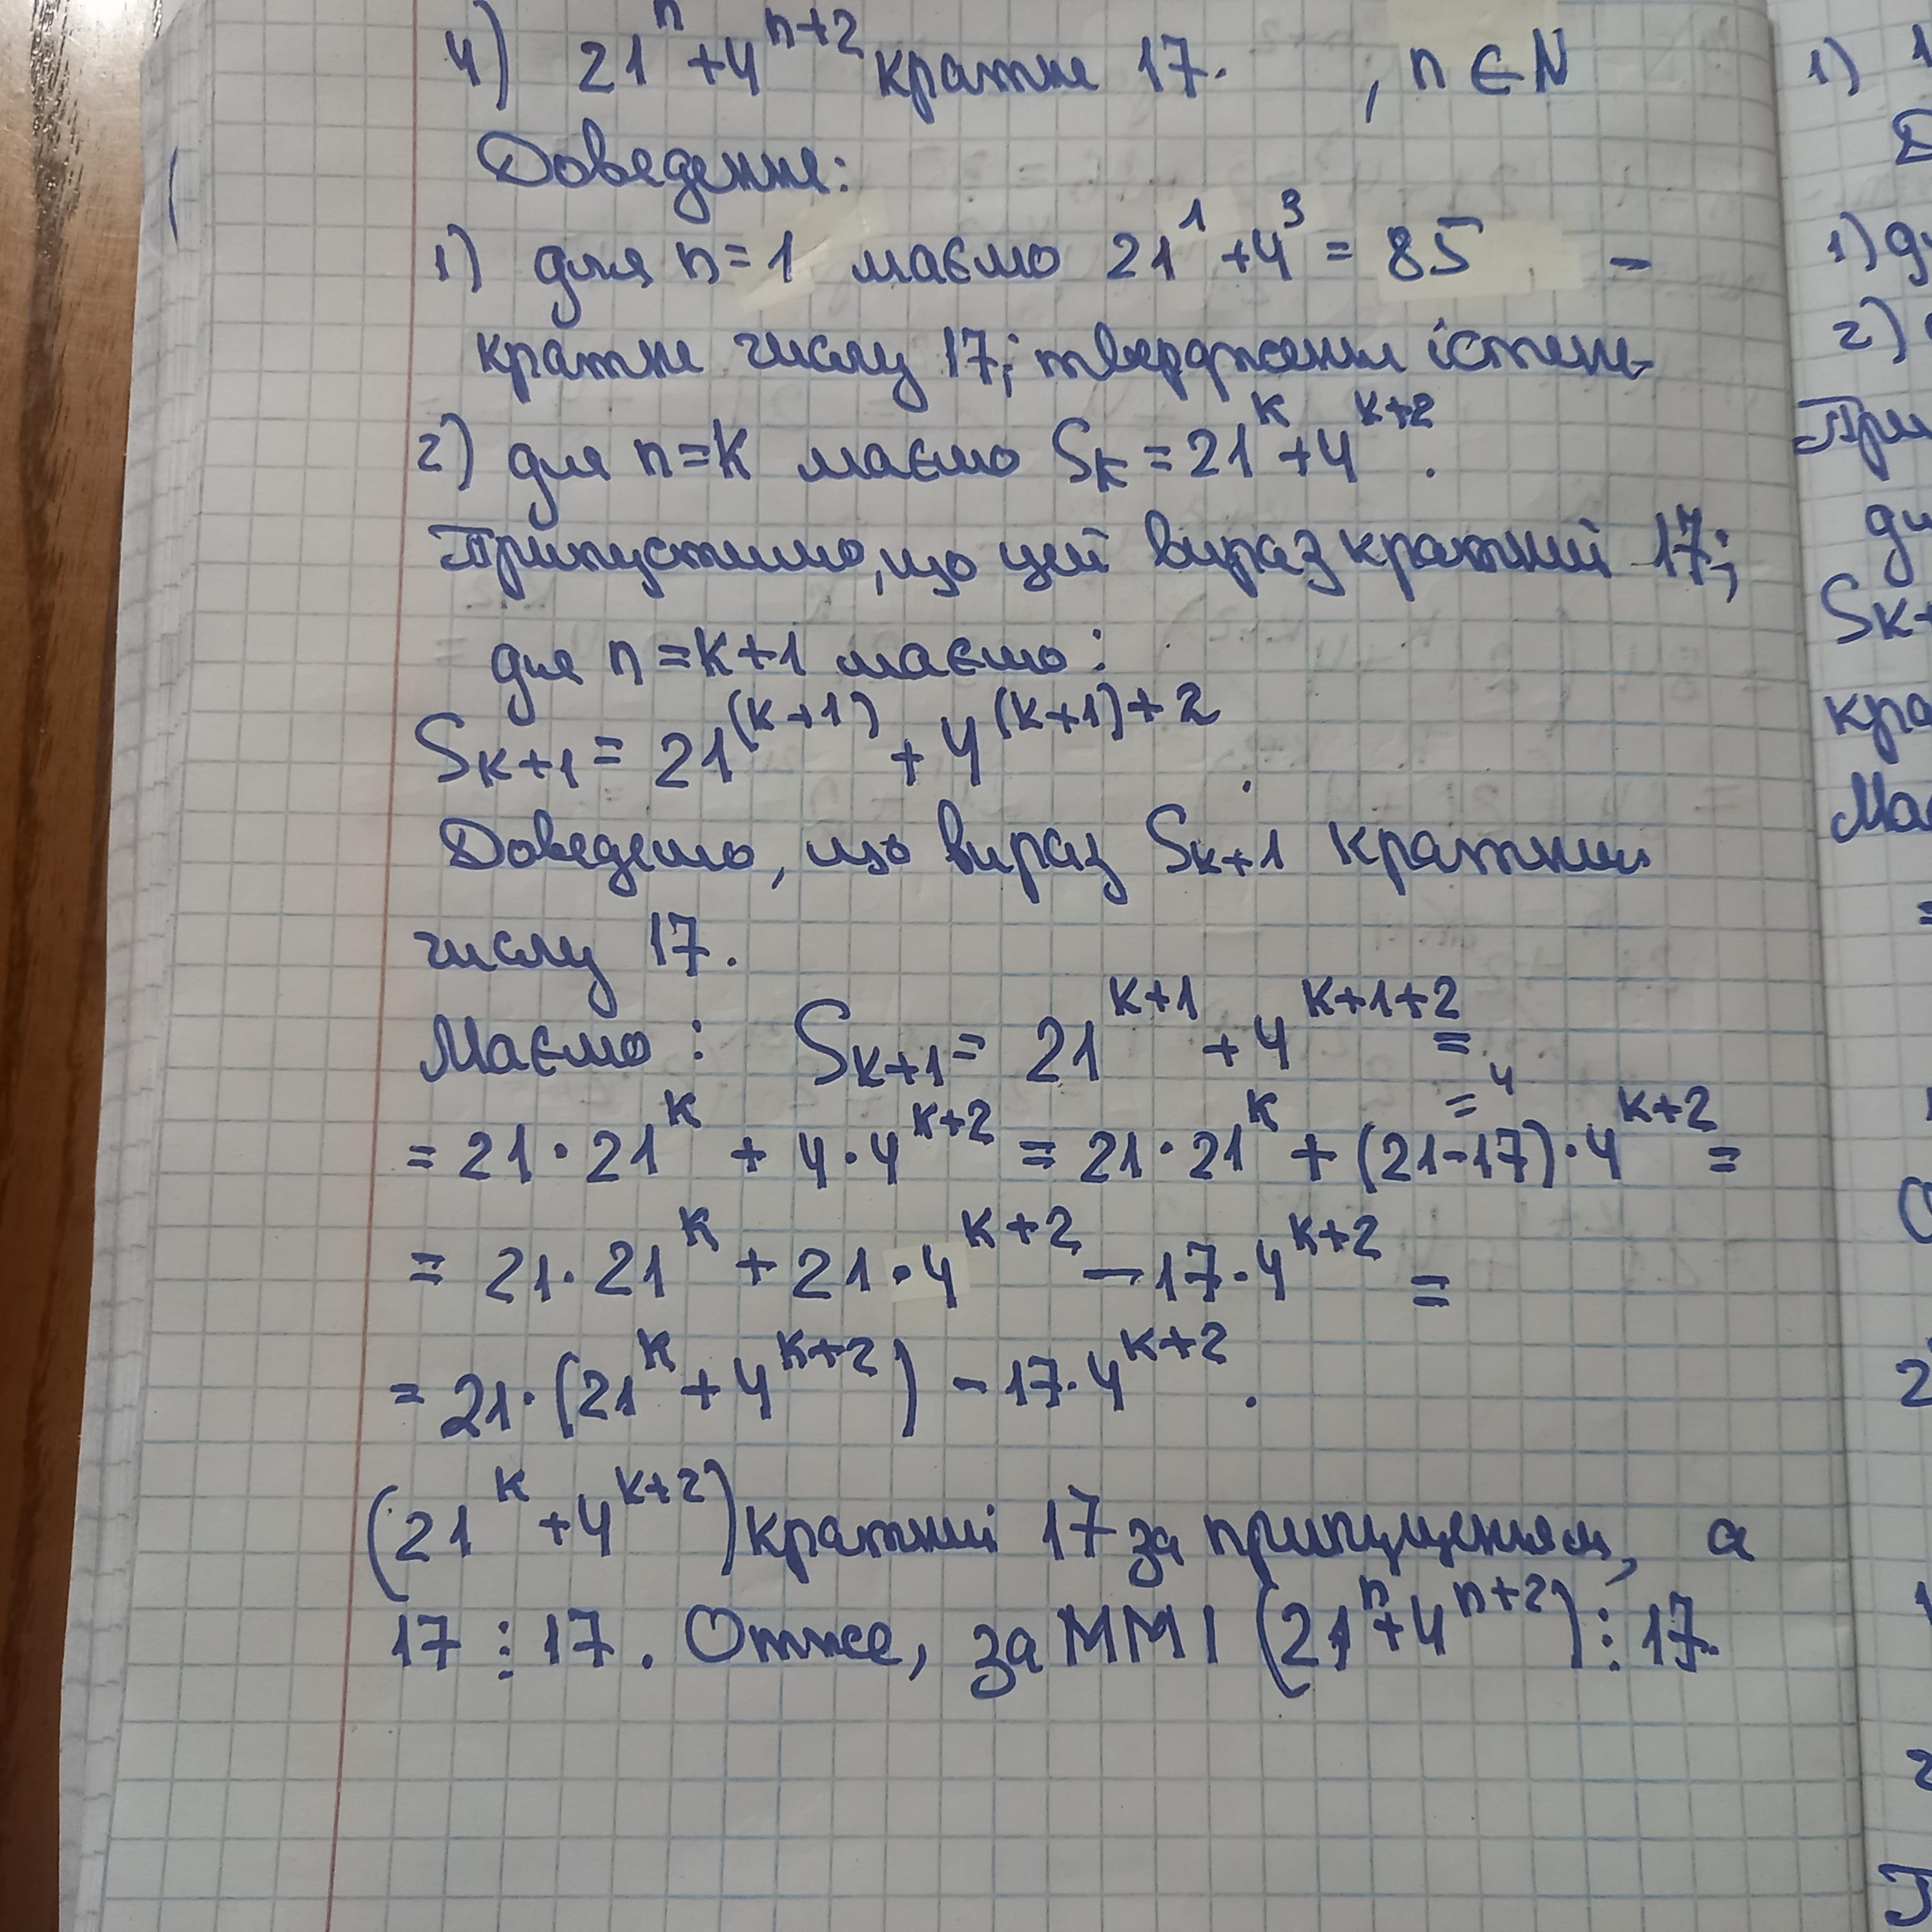 4) 21^n + 4^(n+2) кратне 17. , n ∈ N
Доведення:
1) для n=1 маємо 21^1 + 4^3 = 85 -
кратне числу 17; твердження істине
2) для n=k маємо S_k = 21^k + 4^(k+2).
Припустимо, що цей вираз кратний 17;
для n=k+1 маємо:
S_(k+1) = 21^(k+1) + 4^((k+1)+2).
Доведемо, що вираз S_(k+1) кратний
числу 17.
Маємо: S_(k+1) = 21^(k+1) + 4^(k+1+2) =
=4
= 21·21^k + 4·4^(k+2) = 21·21^k + (21-17)·4^(k+2) =
= 21·21^k + 21·4^(k+2) - 17·4^(k+2) =
= 21·(21^k + 4^(k+2)) - 17·4^(k+2).
(21^k + 4^(k+2)) кратний 17 за припущенням, а
17 ⋮ 17. Отже, за ММІ (21^n + 4^(n+2)) ⋮ 17.